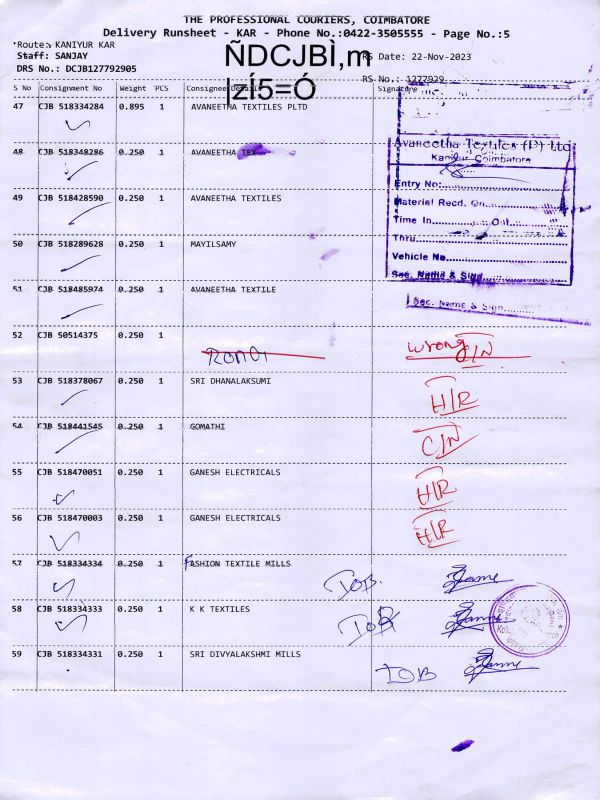 THE PROFESSIONAL COURIERS, COIMBATORE
Delivery Runsheet - KAR - Phone No.:0422-3505555 - Page No.:5
Route: KANIYUR KAR
Staff: SANJAY
ÑDCJBÌ,m
RS Date: 22-Nov-2023
DRS No.: DCJB127792905
|zÍ5=Ó
RS No.: 1277929
S No Consignment No Weight PCS Consignee Details Signature
47 CJB 518334284 0.895 1 AVANEETHA TEXTILES PLTD
Avaneetha Textiles (P) Ltd
Kaniyur Coimbatore
48 CJB 518348286 0.250 1 AVANEETHA TEX
Entry No:
49 CJB 518428590 0.250 1 AVANEETHA TEXTILES
Material Recd. On
Time In Out
50 CJB 518289628 0.250 1 MAYILSAMY
Thru
Vehicle No
Sec. Name & Sign
51 CJB 518485974 0.250 1 AVANEETHA TEXTILE
Sec. Name & Sign
52 CJB 50514375 0.250 1
wrong C/N
53 CJB 518378067 0.250 1 SRI DHANALAKSUMI
H/R
54 CJB 518441545 0.250 1 GOMATHI
C/N
55 CJB 518470051 0.250 1 GANESH ELECTRICALS
H/R
56 CJB 518470003 0.250 1 GANESH ELECTRICALS
H/R
57 CJB 518334334 0.250 1 FASHION TEXTILE MILLS
IOB
58 CJB 518334333 0.250 1 K K TEXTILES
IOB
59 CJB 518334331 0.250 1 SRI DIVYALAKSHMI MILLS
IOB